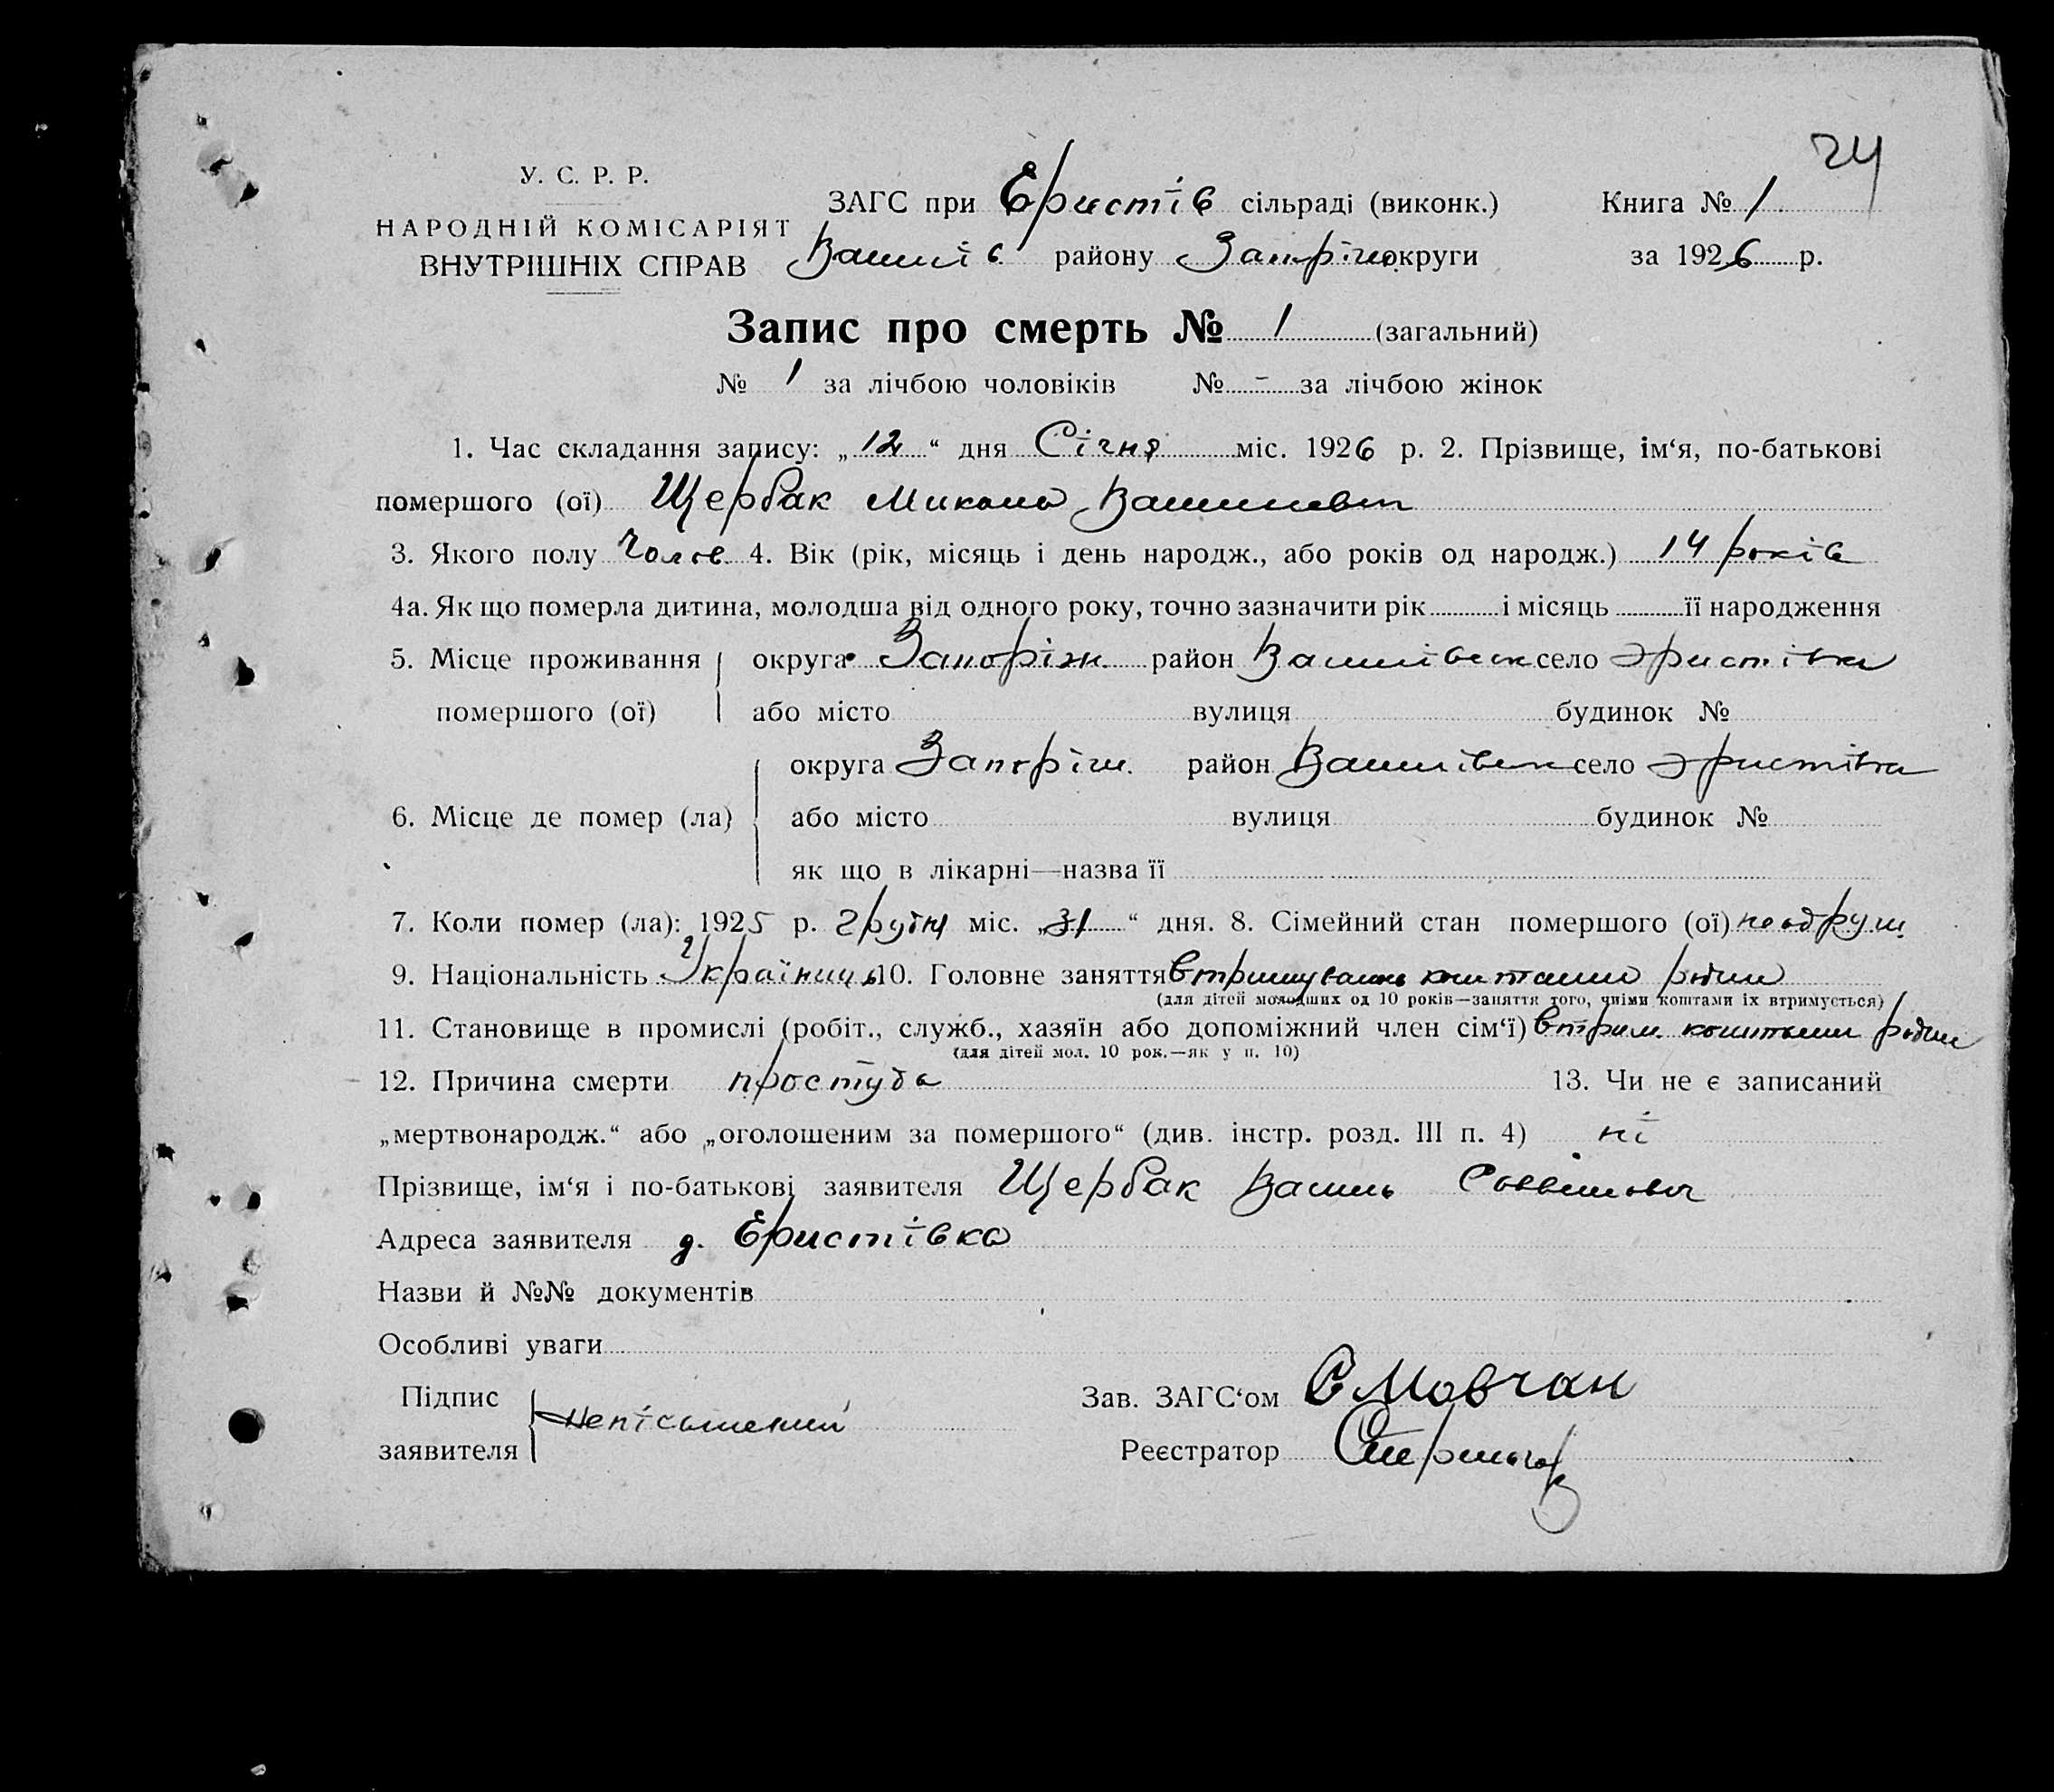 24
У. С. Р. Р.
НАРОДНІЙ КОМІСАРІЯТ
ВНУТРІШНІХ СПРАВ
ЗАГС при Еристів сільраді (виконк.)
Василів району Запоріж округи
Книга № 1
за 1926 р.
Запис про смерть № 1 (загальний)
№ 1 за лічбою чоловіків № - за лічбою жінок
1. Час складання запису: „12“ дня Січня міс. 1926 р. 2. Прізвище, ім‘я, по-батькові
помершого (ої) Щербак Микола Васильевич
3. Якого полу Чолов. 4. Вік (рік, місяць і день народж., або років од народж.) 14 років
4а. Як що померла дитина, молодша від одного року, точно зазначити рік і місяць її народження
5. Місце проживання помершого (ої) округа Запоріж район Василівськ село Эристівка
або місто вулиця будинок №
6. Місце де помер (ла) округа Запоріж. район Василівськ село Эристівка
або місто вулиця будинок №
як що в лікарні—назва її
7. Коли помер (ла): 1925 р. Грудня міс. „31“ дня. 8. Сімейний стан помершого (ої) неодруж.
9. Національність Українець 10. Головне заняття втримування коштами родин
(для дітей молодших од 10 років—заняття того, чиїми коштами їх втримується)
11. Становище в промислі (робіт., служб., хазяїн або допоміжний член сім‘ї) втрим. коштами родин
(для дітей мол. 10 рок.—як у п. 10)
12. Причина смерти простуда 13. Чи не є записаний
„мертвонародж.“ або „оголошеним за помершого“ (див. інстр. розд. III п. 4) ні
Прізвище, ім‘я і по-батькові заявителя Щербак Василь
Адреса заявителя д. Еристівка
Назви й №№ документів
Особливі уваги
Підпис заявителя непісьмений
Зав. ЗАГС‘ом С Мовчан
Реєстратор